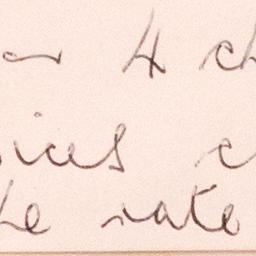 or 4 ch
ices c
he rate